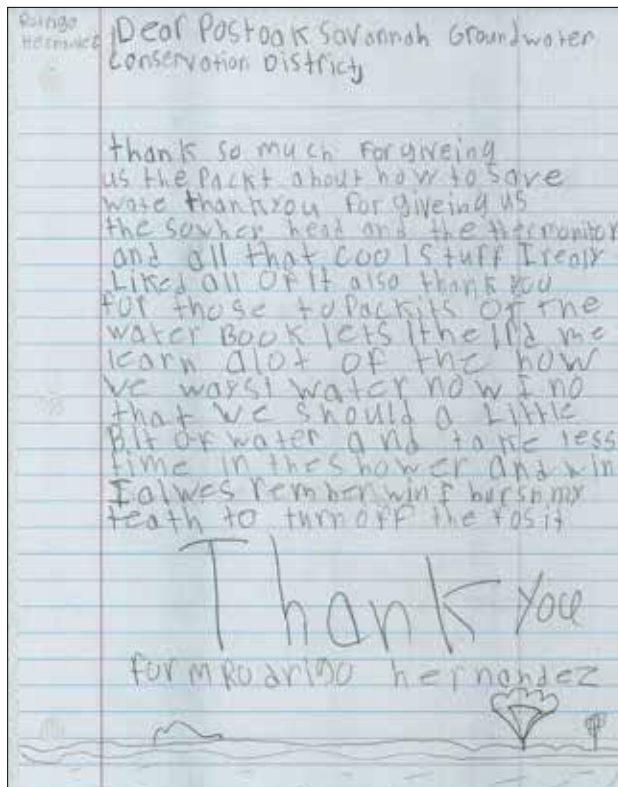 Rorigo
Hernandez
Dear Postoak Savannah Groundwater
Conservation District,
thank so much for giveing
us the packt about how to save
wate thankyou for giveing us
the sowher head and the thermonitor
and all that cool stuff I realy
Liked all of it also thank you
for those to packits of the
water Book lets
me
learn alot of the how
we warst water now I no
that we should a Little
Bit of water and take less
time in the shower and win
I alwes rember win I bursh my
teath to turn off the fosit
Thank You
form Rodrigo hernandez